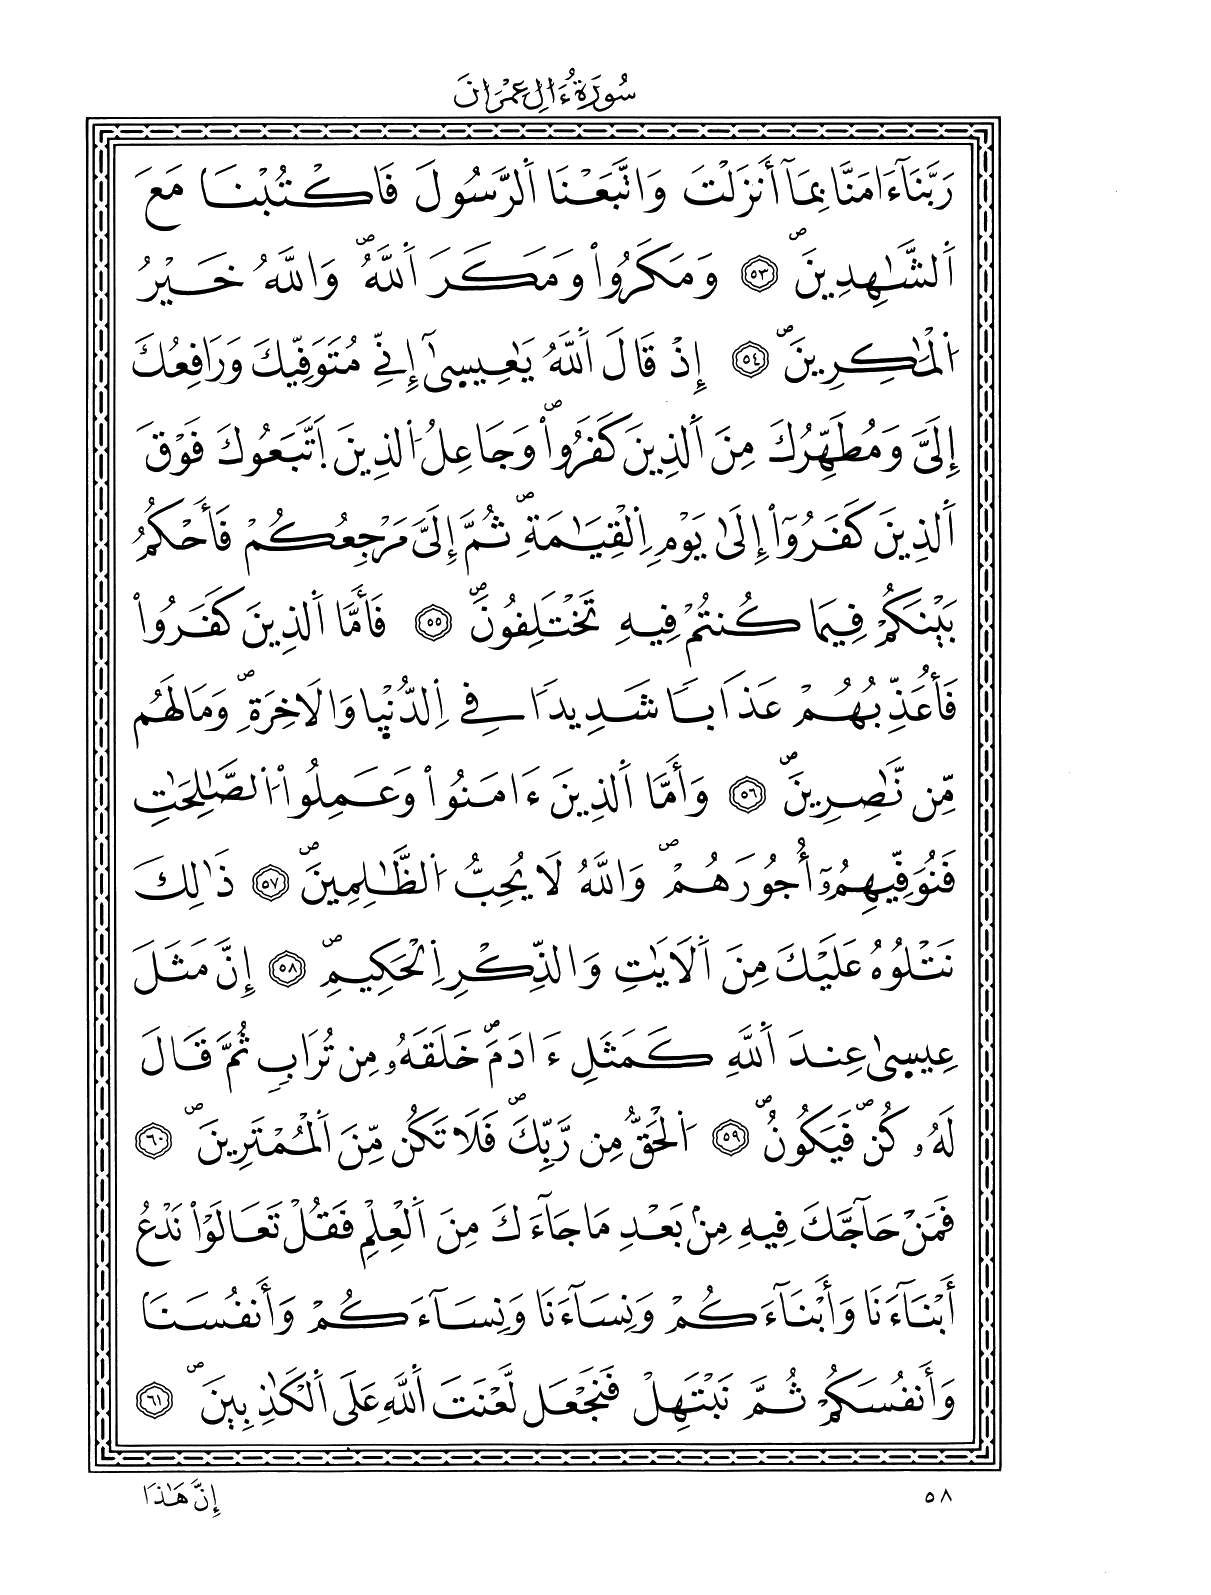 سُورَةُ ءَالِ عِمْرَانَ
رَبَّنَآ ءَامَنَّا بِمَآ أَنزَلْتَ وَاتَّبَعْنَا اَ۬لرَّسُولَ فَاكْتُبْنَا مَعَ
اَ۬لشَّٰهِدِينَۖ ٥٣ وَمَكَرُواْ وَمَكَرَ اَ۬للَّهُۖ وَاللَّهُ خَيْرُ
اُ۬لْمَٰكِرِينَۖ ٥٤ إِذْ قَالَ اَ۬للَّهُ يَٰعِيسَىٰٓ إِنِّے مُتَوَفِّيكَ وَرَافِعُكَ
إِلَيَّ وَمُطَهِّرُكَ مِنَ اَ۬لذِينَ كَفَرُواْۖ وَجَاعِلُ اُ۬لذِينَ اَ۪تَّبَعُوكَ فَوْقَ
اَ۬لذِينَ كَفَرُوٓاْ إِلَىٰ يَوْمِ اِ۬لْقِيَٰمَةِۖ ثُمَّ إِلَيَّ مَرْجِعُكُمْ فَأَحْكُمُ
بَيْنَكُمْ فِيمَا كُنتُمْ فِيهِ تَخْتَلِفُونَۖ ٥٥ فَأَمَّا اَ۬لذِينَ كَفَرُواْ
فَأُعَذِّبُهُمْ عَذَابًا شَدِيدًا فِے اِ۬لدُّنْيٜا وَالَاخِرَةِۖ وَمَا لَهُم
مِّن نَّٰصِرِينَۖ ٥٦ وَأَمَّا اَ۬لذِينَ ءَامَنُواْ وَعَمِلُواْ اُ۬لصَّٰلِحَٰتِ
فَنُوَفِّيهِمُۥٓ أُجُورَهُمْۖ وَاللَّهُ لَا يُحِبُّ اُ۬لظَّٰلِمِينَۖ ٥٧ ذَٰلِكَ
نَتْلُوهُ عَلَيْكَ مِنَ اَ۬لَايَٰتِ وَالذِّكْرِ اِ۬لْحَكِيمِۖ ٥٨ إِنَّ مَثَلَ
عِيسٜىٰ عِندَ اَ۬للَّهِ كَمَثَلِ ءَادَمَۖ خَلَقَهُۥ مِن تُرَابٍ ثُمَّ قَالَ
لَهُۥ كُنۖ فَيَكُونُۖ ٥٩ اُ۬لْحَقُّ مِن رَّبِّكَۖ فَلَا تَكُن مِّنَ اَ۬لْمُمْتَرِينَۖ ٦٠
فَمَنْ حَآجَّكَ فِيهِ مِنۢ بَعْدِ مَا جَآءَكَ مِنَ اَ۬لْعِلْمِ فَقُلْ تَعَالَوْاْ نَدْعُ
أَبْنَآءَنَا وَأَبْنَآءَكُمْ وَنِسَآءَنَا وَنِسَآءَكُمْ وَأَنفُسَنَا
وَأَنفُسَكُمْ ثُمَّ نَبْتَهِلْ فَنَجْعَل لَّعْنَتَ اَ۬للَّهِ عَلَى اَ۬لْكَٰذِبِينَۖ ٦١
٥٨
إِنَّ هَٰذَا